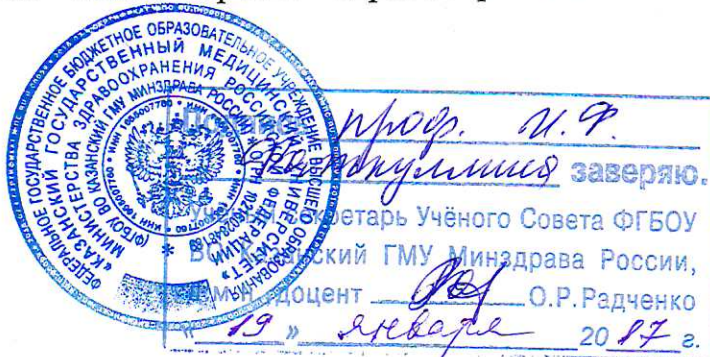 ФЕДЕРАЛЬНОЕ ГОСУДАРСТВЕННОЕ БЮДЖЕТНОЕ ОБРАЗОВАТЕЛЬНОЕ УЧРЕЖДЕНИЕ ВЫСШЕГО ОБРАЗОВАНИЯ
«КАЗАНСКИЙ ГОСУДАРСТВЕННЫЙ МЕДИЦИНСКИЙ УНИВЕРСИТЕТ»
МИНИСТЕРСТВА ЗДРАВООХРАНЕНИЯ РОССИЙСКОЙ ФЕДЕРАЦИИ
(ФГБОУ ВО КАЗАНСКИЙ ГМУ МИНЗДРАВА РОССИИ)
Подпись проф. И. Ф.
заверяю.
Учёный секретарь Учёного Совета ФГБОУ
ВО Казанский ГМУ Минздрава России,
д.м.н., доцент О.Р.Радченко
« 19 » января 2017 г.